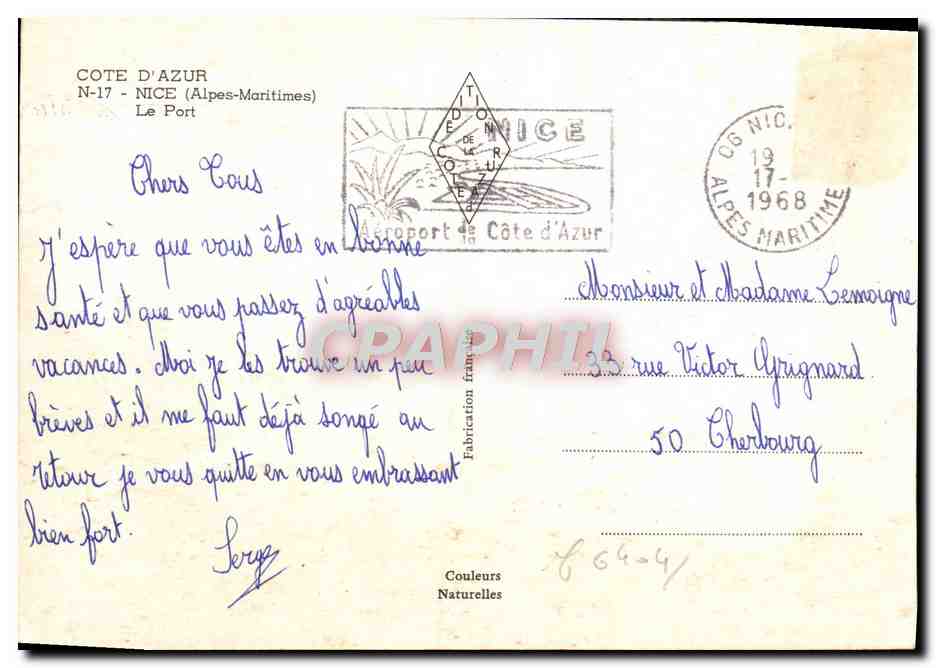 COTE D'AZUR
N-17 - NICE (Alpes-Maritimes)
Le Port
EDITION DE LA COTE D'AZUR
NICE
Aéroport de la Côte d'Azur
06 NIC
19
17-
1968
ALPES MARITIME
Chers Tous
J'espère que vous êtes en bonne
santé et que vous passez d'agréables
vacances. Moi je les trouve un peu
brèves et il me faut déjà songé au
retour je vous quitte en vous embrassant
bien fort.
Serge
Fabrication française
Monsieur et Madame Lemoigne
33 rue Victor Grignard
50 Cherbourg
Couleurs
Naturelles
CPAPHIL